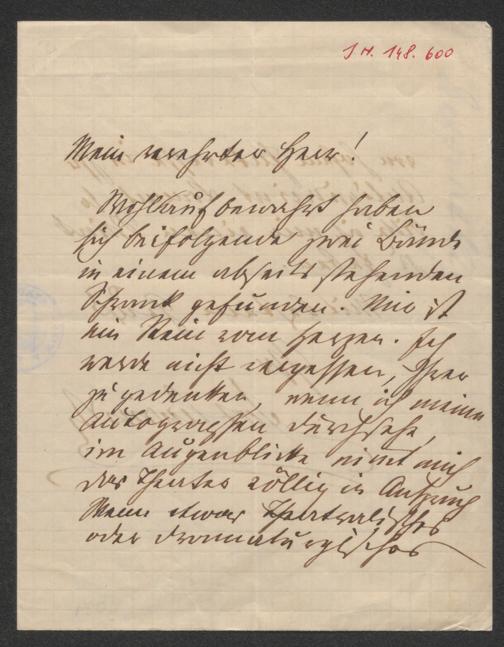 J.N. 148.600
Mein verehrter Herr!
Wohlaufbewahrt haben
sich beifolgende zwei Bände
in einem abseits stehenden
Schrank gefunden. Mir ist
ein Stein vom Herzen. Ich
werde nicht vergessen, Ihrer
zu gedenken, wenn ich meine
Autographen durchsehe,
im Augenblicke nimt mich
das Theater völlig in Anspruch
Wenn etwas Theatralisches
oder Dramaturgisches